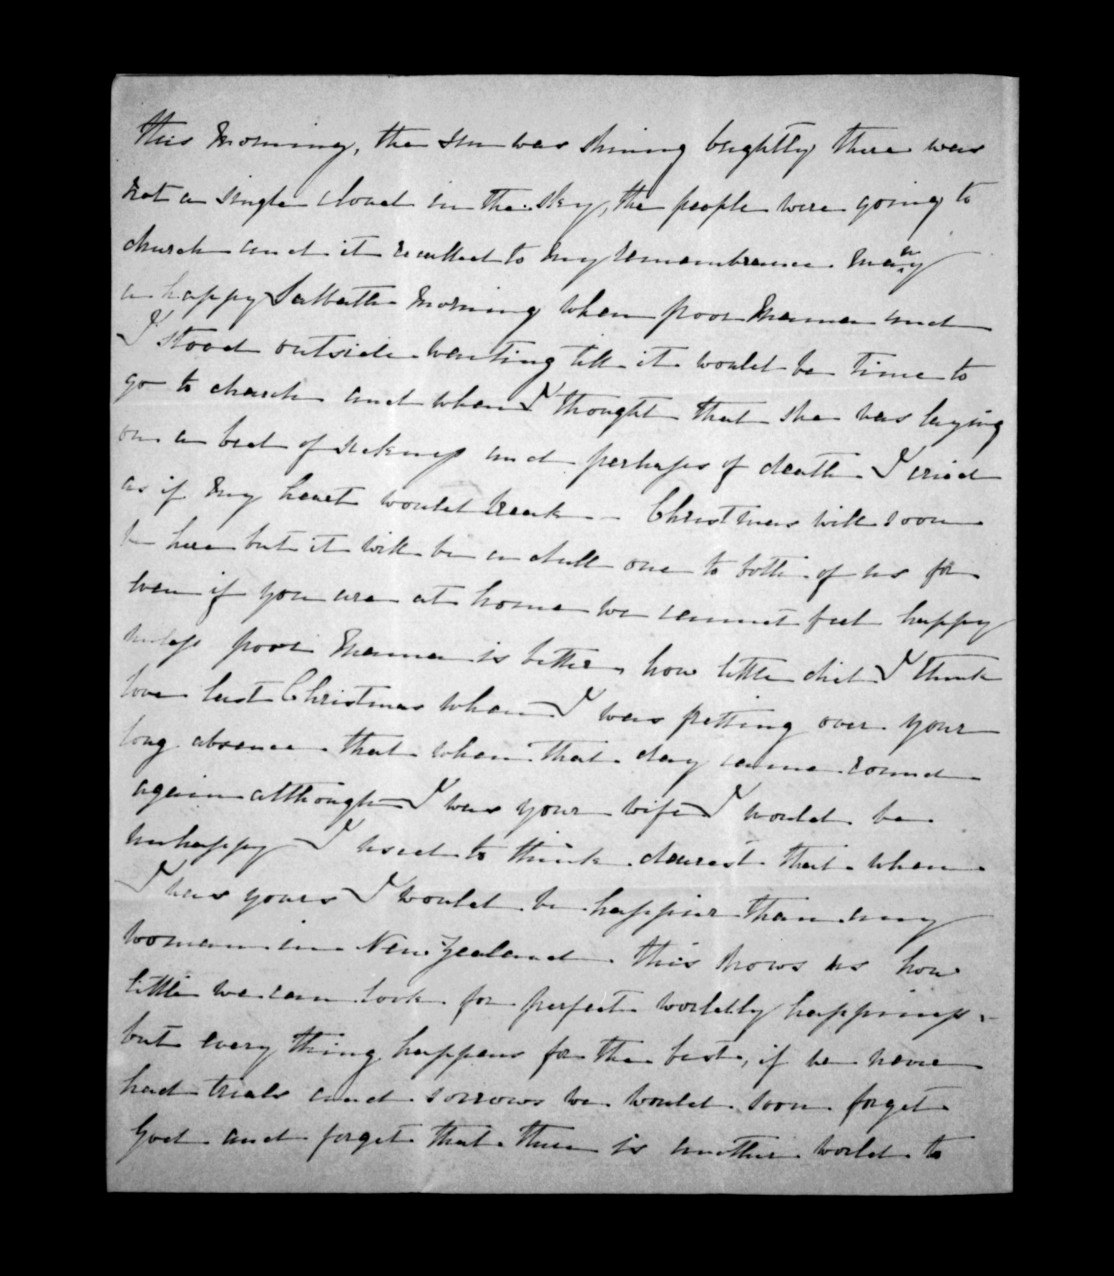 this morning, the sun was shining brightly there was
not a single cloud in the sky, the people were going to
church and it recalled to my remembrance many
a happy Sabbath morning when poor Mama and
I stood outside waiting till it would be time to
go to church and when I thought that she was laying
on a bed of sickness and perhaps of death I cried
as if my heart would break - Christmas will soon
be here but it will be a dull one to both of us for
even if you are at home we cannot feel happy
unless poor Mama is better, how little did I think
love last Christmas when I was fretting over your
long absence that when that day came round
again although I was your wife I would be
unhappy I used to think dearest that when
I was yours I would be happier than any
woman in New Zealand. this shows us how
little we can look for perfect worldly happiness -
but every thing happens for the best, if we never
had trials and sorrows we would soon forget
God and forget that there is another world to